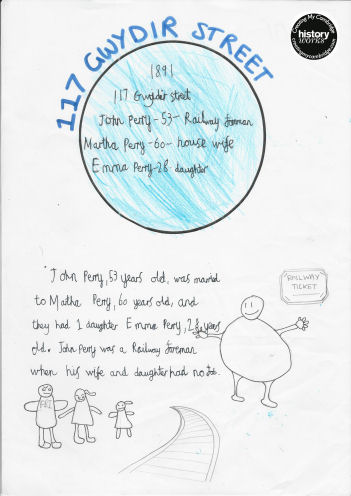 117 GWYDIR STREET
Creating My Cambridge
history
WORKS
creatingmycambridge.com
1891
117 Gwydir street
John Perry-53- Railway foreman
Martha Perry-60- house wife
Emma Perry-28 daughter
John Perry, 53 years old, was married
to Martha Perry, 60 years old, and
they had 1 daughter Emma Perry, 28 years
old. John Perry was a Railway foreman
when his wife and daughter had no
RAILWAY
TICKET